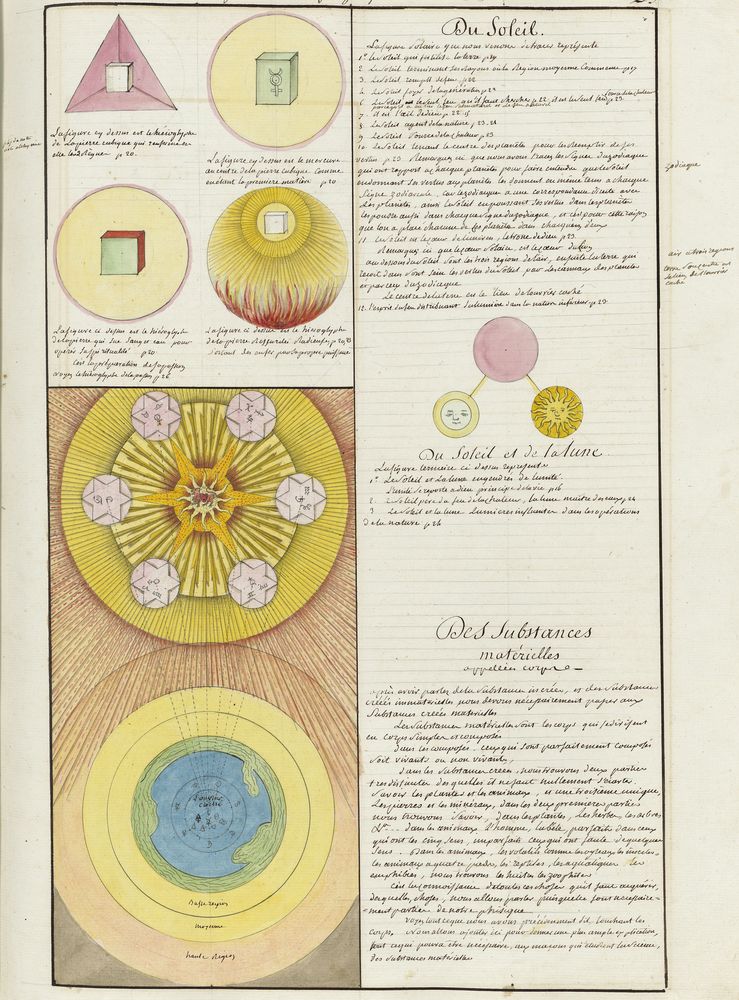 La figure cy dessus est le hieroglyphe
de la pierre cubique qui renferme en
elle les 3 Regne p 20.
La figure cy dessus est le mercure
au centre de la pierre cubique comme
étant la premiere matiere p 20
La figure ci dessus est le hieroglyphe
de la pierre qui sue sang et eau pour
operer sa spiritualité p 20
C'est la preparation de sa passion
voyez le hieroglyphe de la passion p 26
La figure ci dessus est le hieroglyphe
de la pierre
Du Soleil.
La figure solaire que nous venons de tracer represente
1° Le Soleil qui fertilise la terre p 29
2 Le Soleil terminant ses rayons où la Region moyenne Commence p 27
3 Le Soleil remplit de feu p 22
4 Le Soleil foyer de la génération p 23
7 il est l'œil de dieu p 22
8 Le Soleil agent de la nature p 23.24
9 Le Soleil Source de la chaleur p 23
10 Le Soleil tenant le centre des planetes pour les remplir de ses
vertus p 23 Remarques ici que nous avons tracé les signes du zodiaque
qui ont rapport a chaque planete pour faire entendre que le Soleil
en donnant ses vertus aux planetes les donnent en même tems a chaque
Signe zodiacale, car le zodiaque a une correspondance directe avec
des planetes, ainsi le Soleil en poussant ses vertus dans les planetes
les pousse aussi dans chaque signe du zodiaque, et c'est pour cette raison
que l'on a placé chacune des planetes dans chacun deux
11 Le Soleil est le cœur de la lumiere, le trone de dieu p 23
Remarques ici que le cœur Solaire, est le cœur
au dessous du Soleil sont les trois regions de l'air, ensuite la terre qui
recoit dans son sein les vertus du Soleil par les canaux des planetes
et par ceux du zodiaque
Le centre de la terre est le lieu de l'ouvrier caché
12. L'esprit de feu distribuant sa lumiere dans la nature inferieure p 23
zodiaque
Du Soleil et de la lune
La figure ternaire ci dessus represente
1° Le Soleil et la lune engendrés de l'unité.
L'unité se raporte a dieu principe de la vie p 16
2 Le Soleil pere du feu de la chaleur, la lune maitre des eaux p 24
3 Le Soleil et la lune Lumieres influantes dans les opérations
de la nature p 24
Des Substances
matérielles
appellées corps
après avoir parlez de la Substance increée, et des Substances
créées immaterielles nous devons necessairement passer aux
Substances creées materielles
Les Substances matérielles sont les corps qui se divisent
en corps simples et composés
Dans les composés ceux qui sont parfaitement composés
Soit vivants ou non vivants,
dans les Substances creées, nous trouvons deux parties
tres distinctes desquelles il ne faut nullement s'ecarter
Savoir les plantes et les animaux, et une troisieme unique,
Les pierres et les mineraux, dans les deux premieres parties
nous trouvons Savoir, dans les plantes, Les herbes les arbres
&c dans les animaux l'homme, la bête, parfaits dans ceux
qui ont les cinq sens, imparfaits ceux qui ont faute de quelques
Sens. Dans les animaux, les volatils comme les oyseaux les insectes
les animaux a quatre pieds, les reptiles, les aquatiques les
amphibies, nous trouvons les huitres les zoophites
C'est la connoissance de toutes ces choses qu'il faut acquerir
desquelles choses, nous allons parler puisqu'elles font necessaire-
ment partie de notre phisique
Voyez tout ce que nous avons précédemment dit touchant les
corps. Nous allons ajouter ici pour donner une plus ample explication,
tout ce qui pourra être nécessaire, aux maçons qui etudient la Science,
des Substances materielles
l'ouvrier
caché
Basse region
moyenne
haute Region